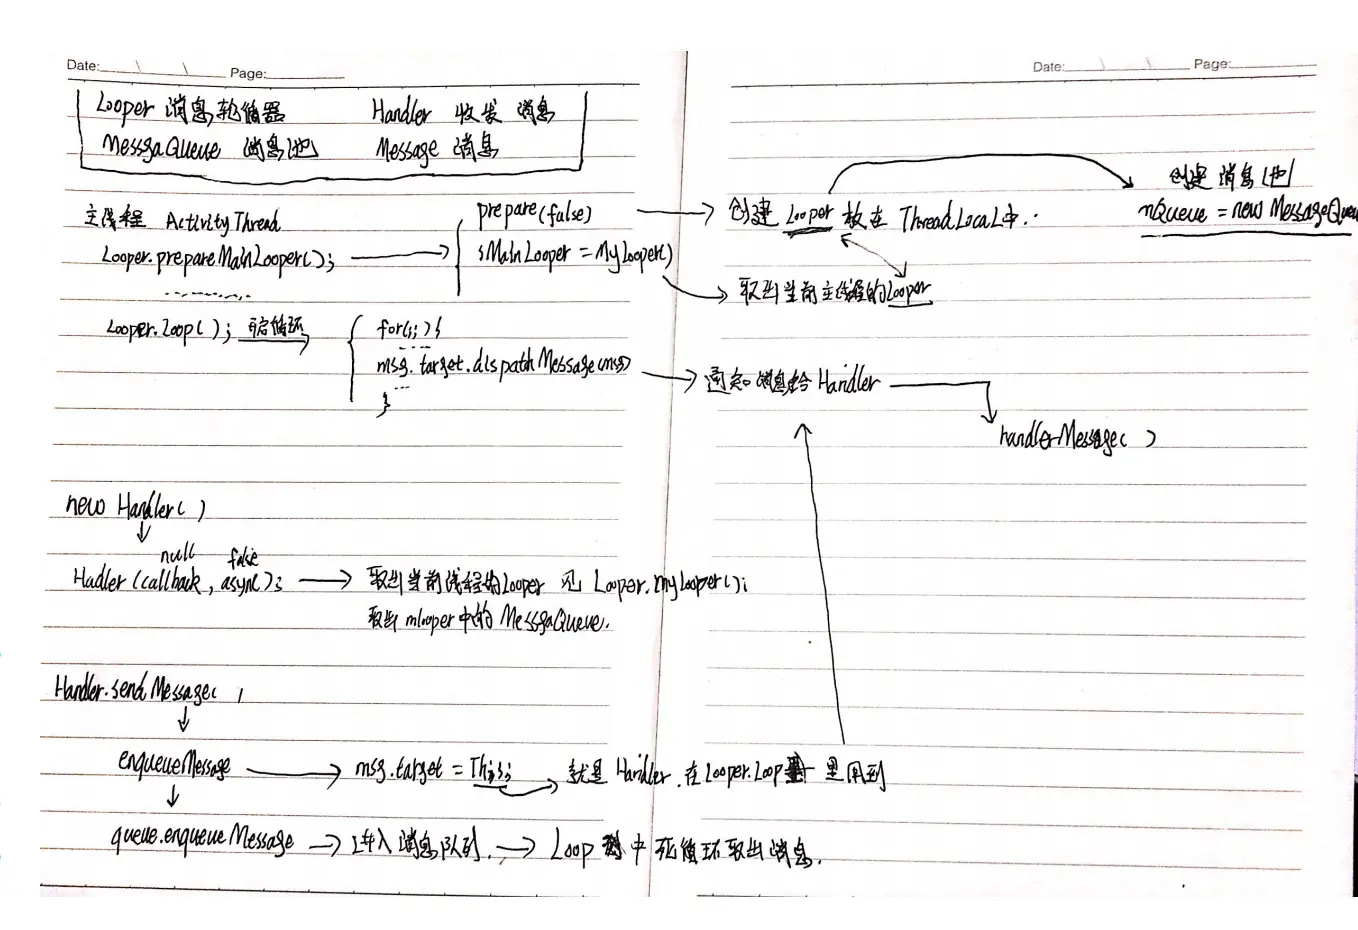 Date: \ \ Page:
Date: \ \ Page:
Looper 消息轮循器 Handler 收发 消息
MessgaQueue 消息池 Message 消息
主线程 ActivityThread
Looper.prepareMainLooper();
prepare(false)
sMainLooper = MyLooper()
创建 Looper 放在 ThreadLocal中.
创建 消息池
mQueue = new MessageQueu
取出当前主线程的Looper
Looper.Loop(); 开启循环
for(;;){
msg.target.dispathMessage(msg)
}
通知 消息给 Handler
handlerMessage( )
new Handler( )
null false
Hadler(callback, async);
取出当前线程的Looper 见 Looper.myLooper();
取出 mlooper中的 MessgaQueue.
Handler.sendMessage( )
enqueueMessage
msg.target = This;
就是 Handler.在Looper.Loop 里用到
queue.enqueueMessage
进入 消息队列.
Loop 中 死循环取出消息.